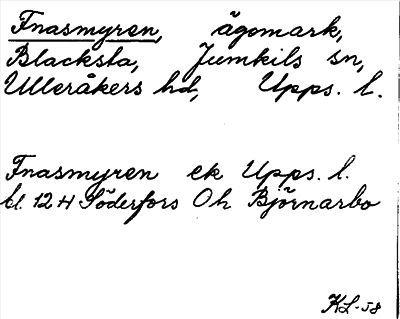 Fnasmyren, ägomark,
Blacksta, Jumkils sn,
Ulleråkers hd, Upps. l.
Fnasmyren ek Upps. l.
bl. 12 H Söderfors Oh Björnarbo
KL-58